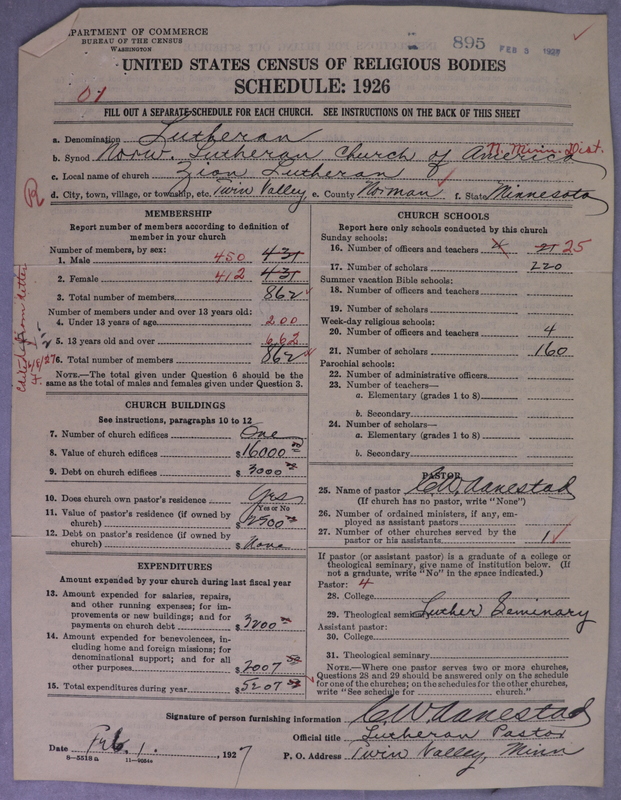 DEPARTMENT OF COMMERCE
BUREAU OF THE CENSUS
WASHINGTON
895 FEB 3 1927
UNITED STATES CENSUS OF RELIGIOUS BODIES
SCHEDULE: 1926
01
FILL OUT A SEPARATE SCHEDULE FOR EACH CHURCH. SEE INSTRUCTIONS ON THE BACK OF THIS SHEET
a. Denomination Lutheran
b. Synod Norw. Lutheran Church of America N. Minn. Dist.
c. Local name of church Zion Lutheran
d. City, town, village, or township, etc. Twin Valley e. County Norman f. State Minnesota
R
MEMBERSHIP
Report number of members according to definition of
member in your church
Number of members, by sex:
1. Male 450 431
2. Female 412 431
3. Total number of members 862
Number of members under and over 13 years old:
4. Under 13 years of age 200
5. 13 years old and over 662
6. Total number of members 862
NOTE.—The total given under Question 6 should be
same as the total of males and females given under Question 3.
CHURCH BUILDINGS
See instructions, paragraphs 10 to 12
7. Number of church edifices One
8. Value of church edifices $ 16000 00
9. Debt on church edifices $ 3000 00
10. Does church own pastor's residence Yes
Yes or No
11. Value of pastor's residence (if owned by
church) $ 2500 00
12. Debt on pastor's residence (if owned by
church) $ None
EXPENDITURES
Amount expended by your church during last fiscal year
13. Amount expended for salaries, repairs,
and other running expenses; for im-
provements or new buildings; and for
payments on church debt $ 3200 00
14. Amount expended for benevolences, in-
cluding home and foreign missions; for
denominational support; and for all
other purposes $ 2007
15. Total expenditures during year $ 5207
CHURCH SCHOOLS
Report here only schools conducted by this church
Sunday schools:
16. Number of officers and teachers 21 25
17. Number of scholars 220
Summer vacation Bible schools:
18. Number of officers and teachers
19. Number of scholars
Week-day religious schools:
20. Number of officers and teachers 4
21. Number of scholars 160
Parochial schools:
22. Number of administrative officers
23. Number of teachers—
a. Elementary (grades 1 to 8)
b. Secondary
24. Number of scholars—
a. Elementary (grades 1 to 8)
b. Secondary
PASTOR
25. Name of pastor C.W. Aanestad
(If church has no pastor, write "None")
26. Number of ordained ministers, if any, em-
ployed as assistant pastors
27. Number of other churches served by the
pastor or his assistants 1
If pastor (or assistant pastor) is a graduate of a college or
theological seminary, give name of institution below. (If
not a graduate, write "No" in the space indicated.)
Pastor: 4
28. College
29. Theological seminary Luther Seminary
Assistant pastor:
30. College
31. Theological seminary
NOTE.—Where one pastor serves two or more churches,
Questions 28 and 29 should be answered only on the schedule
for one of the churches; on the schedules for the other churches,
write "See schedule for church."
Signature of person furnishing information C.W. Aanestad
Official title Lutheran Pastor
Date Feb. 1. , 1927 P. O. Address Twin Valley, Minn
8—5518 a 11—9924a